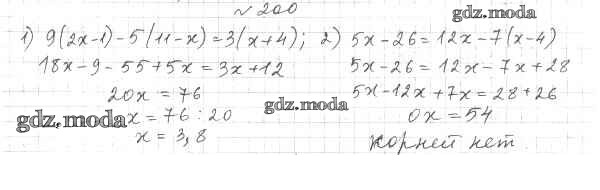 № 200
1) 9(2x-1)-5(11-x)=3(x+4);
18x-9-55+5x=3x+12
20x=76
x=76:20
x=3,8
2) 5x-26=12x-7(x-4)
5x-26=12x-7x+28
5x-12x+7x=28+26
0x=54
корней нет.
gdz.moda
gdz.moda
gdz.moda